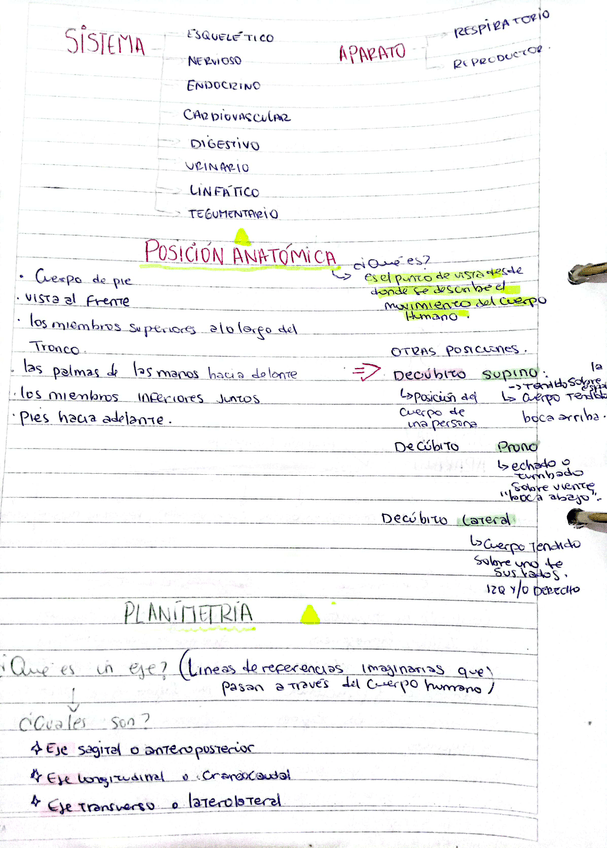 SISTEMA
ESQUELÉTICO
NERVIOSO
ENDOCRINO
CARDIOVASCULAR
DIGESTIVO
URINARIO
LINFÁTICO
TEGUMENTARIO
APARATO
RESPIRATORIO
REPRODUCTOR.
POSICIÓN ANATÓMICA
· Cuerpo de pie
· vista al frente
· los miembros superiores a lo largo del
Tronco.
· las palmas de las manos hacia delante
· los miembros inferiores juntos
· Pies hacia adelante.
¿Qué es?
Es el punto de vista desde
donde se describe el
movimiento del cuerpo
Humano.
OTRAS POSICIONES.
⇒ Decúbito supino:
↳ posición del
cuerpo de
una persona
la
→ Tendido sobre
↳ Cuerpo Tendido
boca arriba.
Decúbito Prono
↳ echado o
tumbado
sobre vientre
"boca abajo".
Decúbito Lateral
↳ Cuerpo Tendido
sobre uno de
sus lados.
IZQ Y/O DERECHO
PLANIMETRÍA
¿Qué es un eje? (Lineas de referencias imaginarias que
pasan a través del cuerpo humano)
¿Cuales son?
Eje sagital o anteroposterior
Eje longitudinal o craneocaudal
Eje transverso o laterolateral